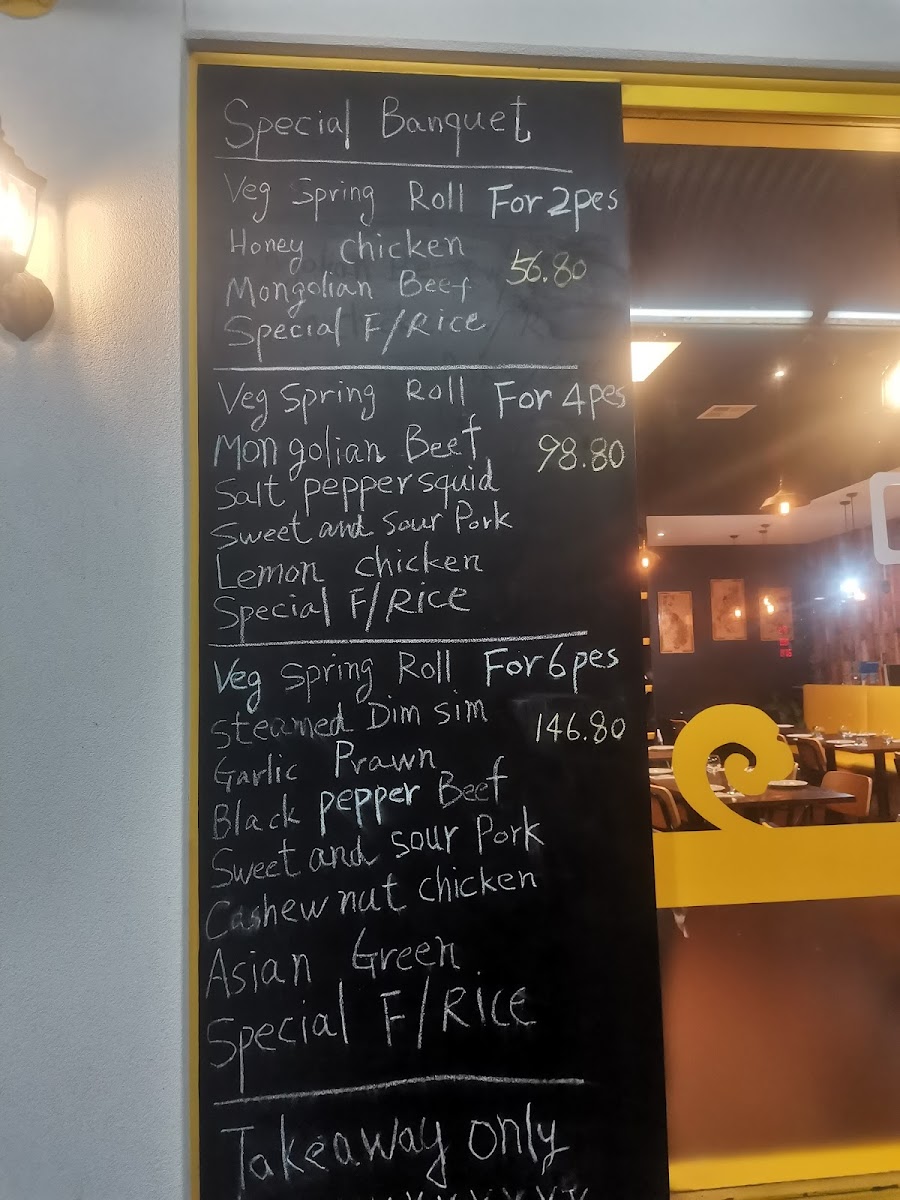 Special Banquet
Veg Spring Roll For 2pes
Honey chicken
56.80
Mongolian Beef
Special F/Rice
Veg Spring Roll For 4pes
Mongolian Beef 98.80
Salt pepper squid
Sweet and Sour Pork
Lemon chicken
Special F/Rice
Veg Spring Roll For 6pes
Steamed Dim sim 146.80
Garlic Prawn
Black pepper Beef
Sweet and sour Pork
Cashew nut chicken
Asian Green
Special F/Rice
Takeaway only